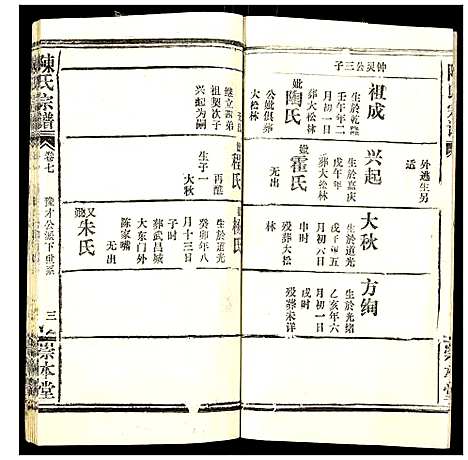 钟灵公三子
祖成
生於乾隆
壬午年二
月初六日
葬大松林
妣陶氏
公媿俱葬
大松林
继立胞弟
祖契次子
兴起为嗣
兴起
生於嘉庆
戊午年
月初一日
葬大松林
妣霍氏
无出
程氏
再醮
生子一
大秋
外逃生男
适
大秋
生於道光
月初六日
申时
殁葬大松
林
杨氏
生於道光
癸卯年八
月十三日
子时
葬武昌城
大东门外
陈家嘴
无出
又媿
朱氏
方绚
生於光绪
乙亥年六
月初一日
戌时
殁葬未详
陳氏宗譜
卷七
豫才公派下世系
三
崇本堂